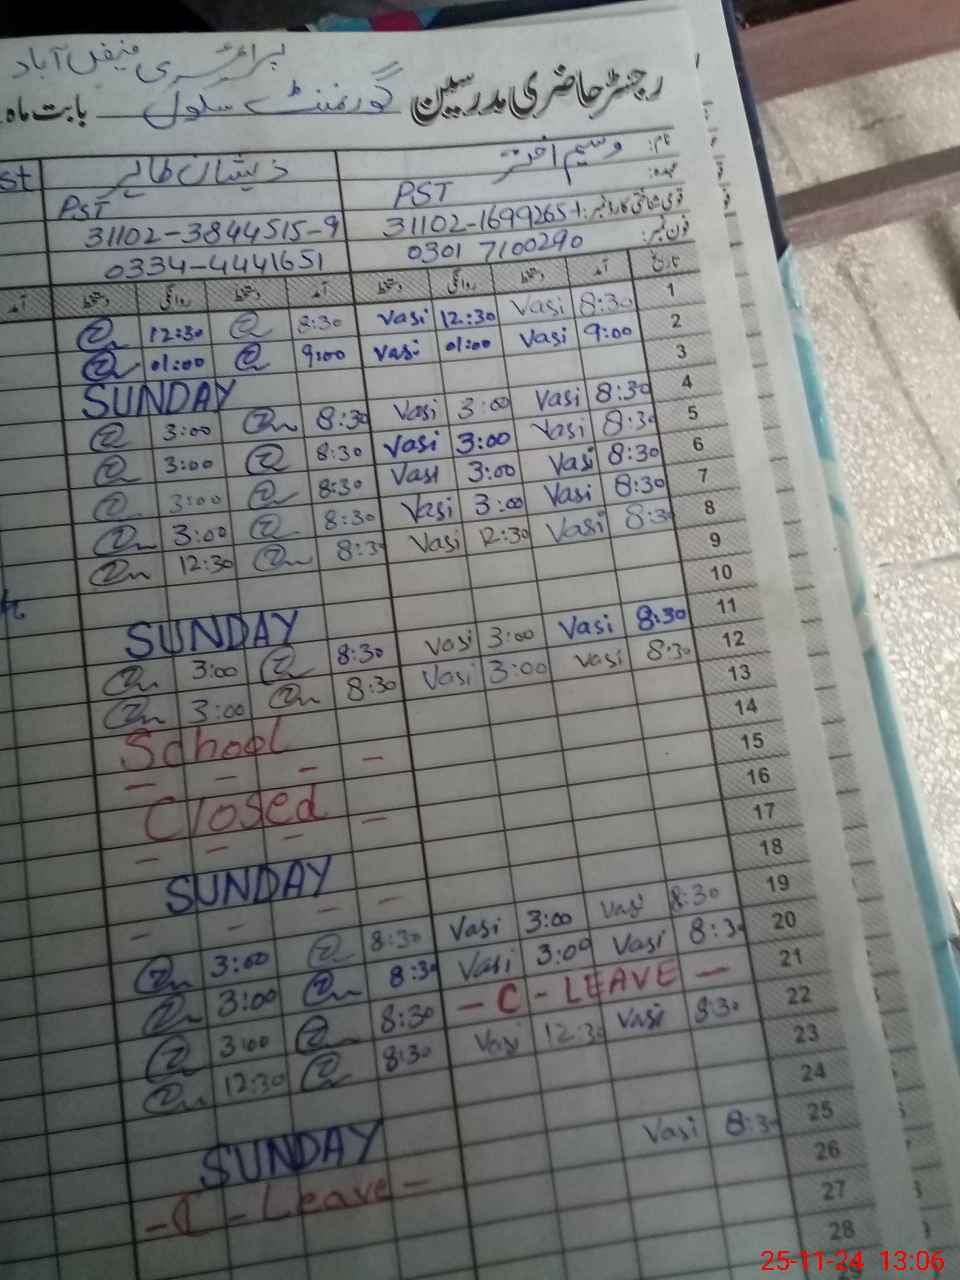 پرائمری فیض آباد
رجسٹر حاضری مدرسین گورنمنٹ سکول بابت ماہ
نام: وسیم اختر ذیشان طاہر
عہدہ: PST PST st
قومی شناختی کارڈ نمبر: 31102-1699265-1 31102-3844515-9
فون نمبر: 0301 7100290 0334-4441651
تاریخ آمد دستخط روانگی دستخط آمد دستخط روانگی دستخط آمد
1 8:30 Vasi 12:30 Vasi 8:30 12:30
2 9:00 Vasi 01:00 Vasi 9:00 01:00
3 SUNDAY
4 8:30 Vasi 3:00 Vasi 8:30 3:00
5 8:30 Vasi 3:00 Vasi 8:30 3:00
6 8:30 Vasi 3:00 Vasi 8:30 3:00
7 8:30 Vasi 3:00 Vasi 8:30 3:00
8 8:30 Vasi 12:30 Vasi 8:30 12:30
9
10 SUNDAY
11 8:30 Vasi 3:00 Vasi 8:30 3:00
12 8:30 Vasi 3:00 Vasi 8:30 3:00
13 School
14 - - - -
15 Closed
16 - - - -
17 SUNDAY
18 - - - -
19 8:30 Vasi 3:00 Vasi 8:30 3:00
20 8:30 Vasi 3:00 Vasi 8:30 3:00
21 - C - LEAVE - 8:30 3:00
22 8:30 Vasi 12:30 Vasi 8:30 12:30
23
24 SUNDAY
25 8:30 Vasi - C - Leave -
26
27
28
25-11-24 13:06